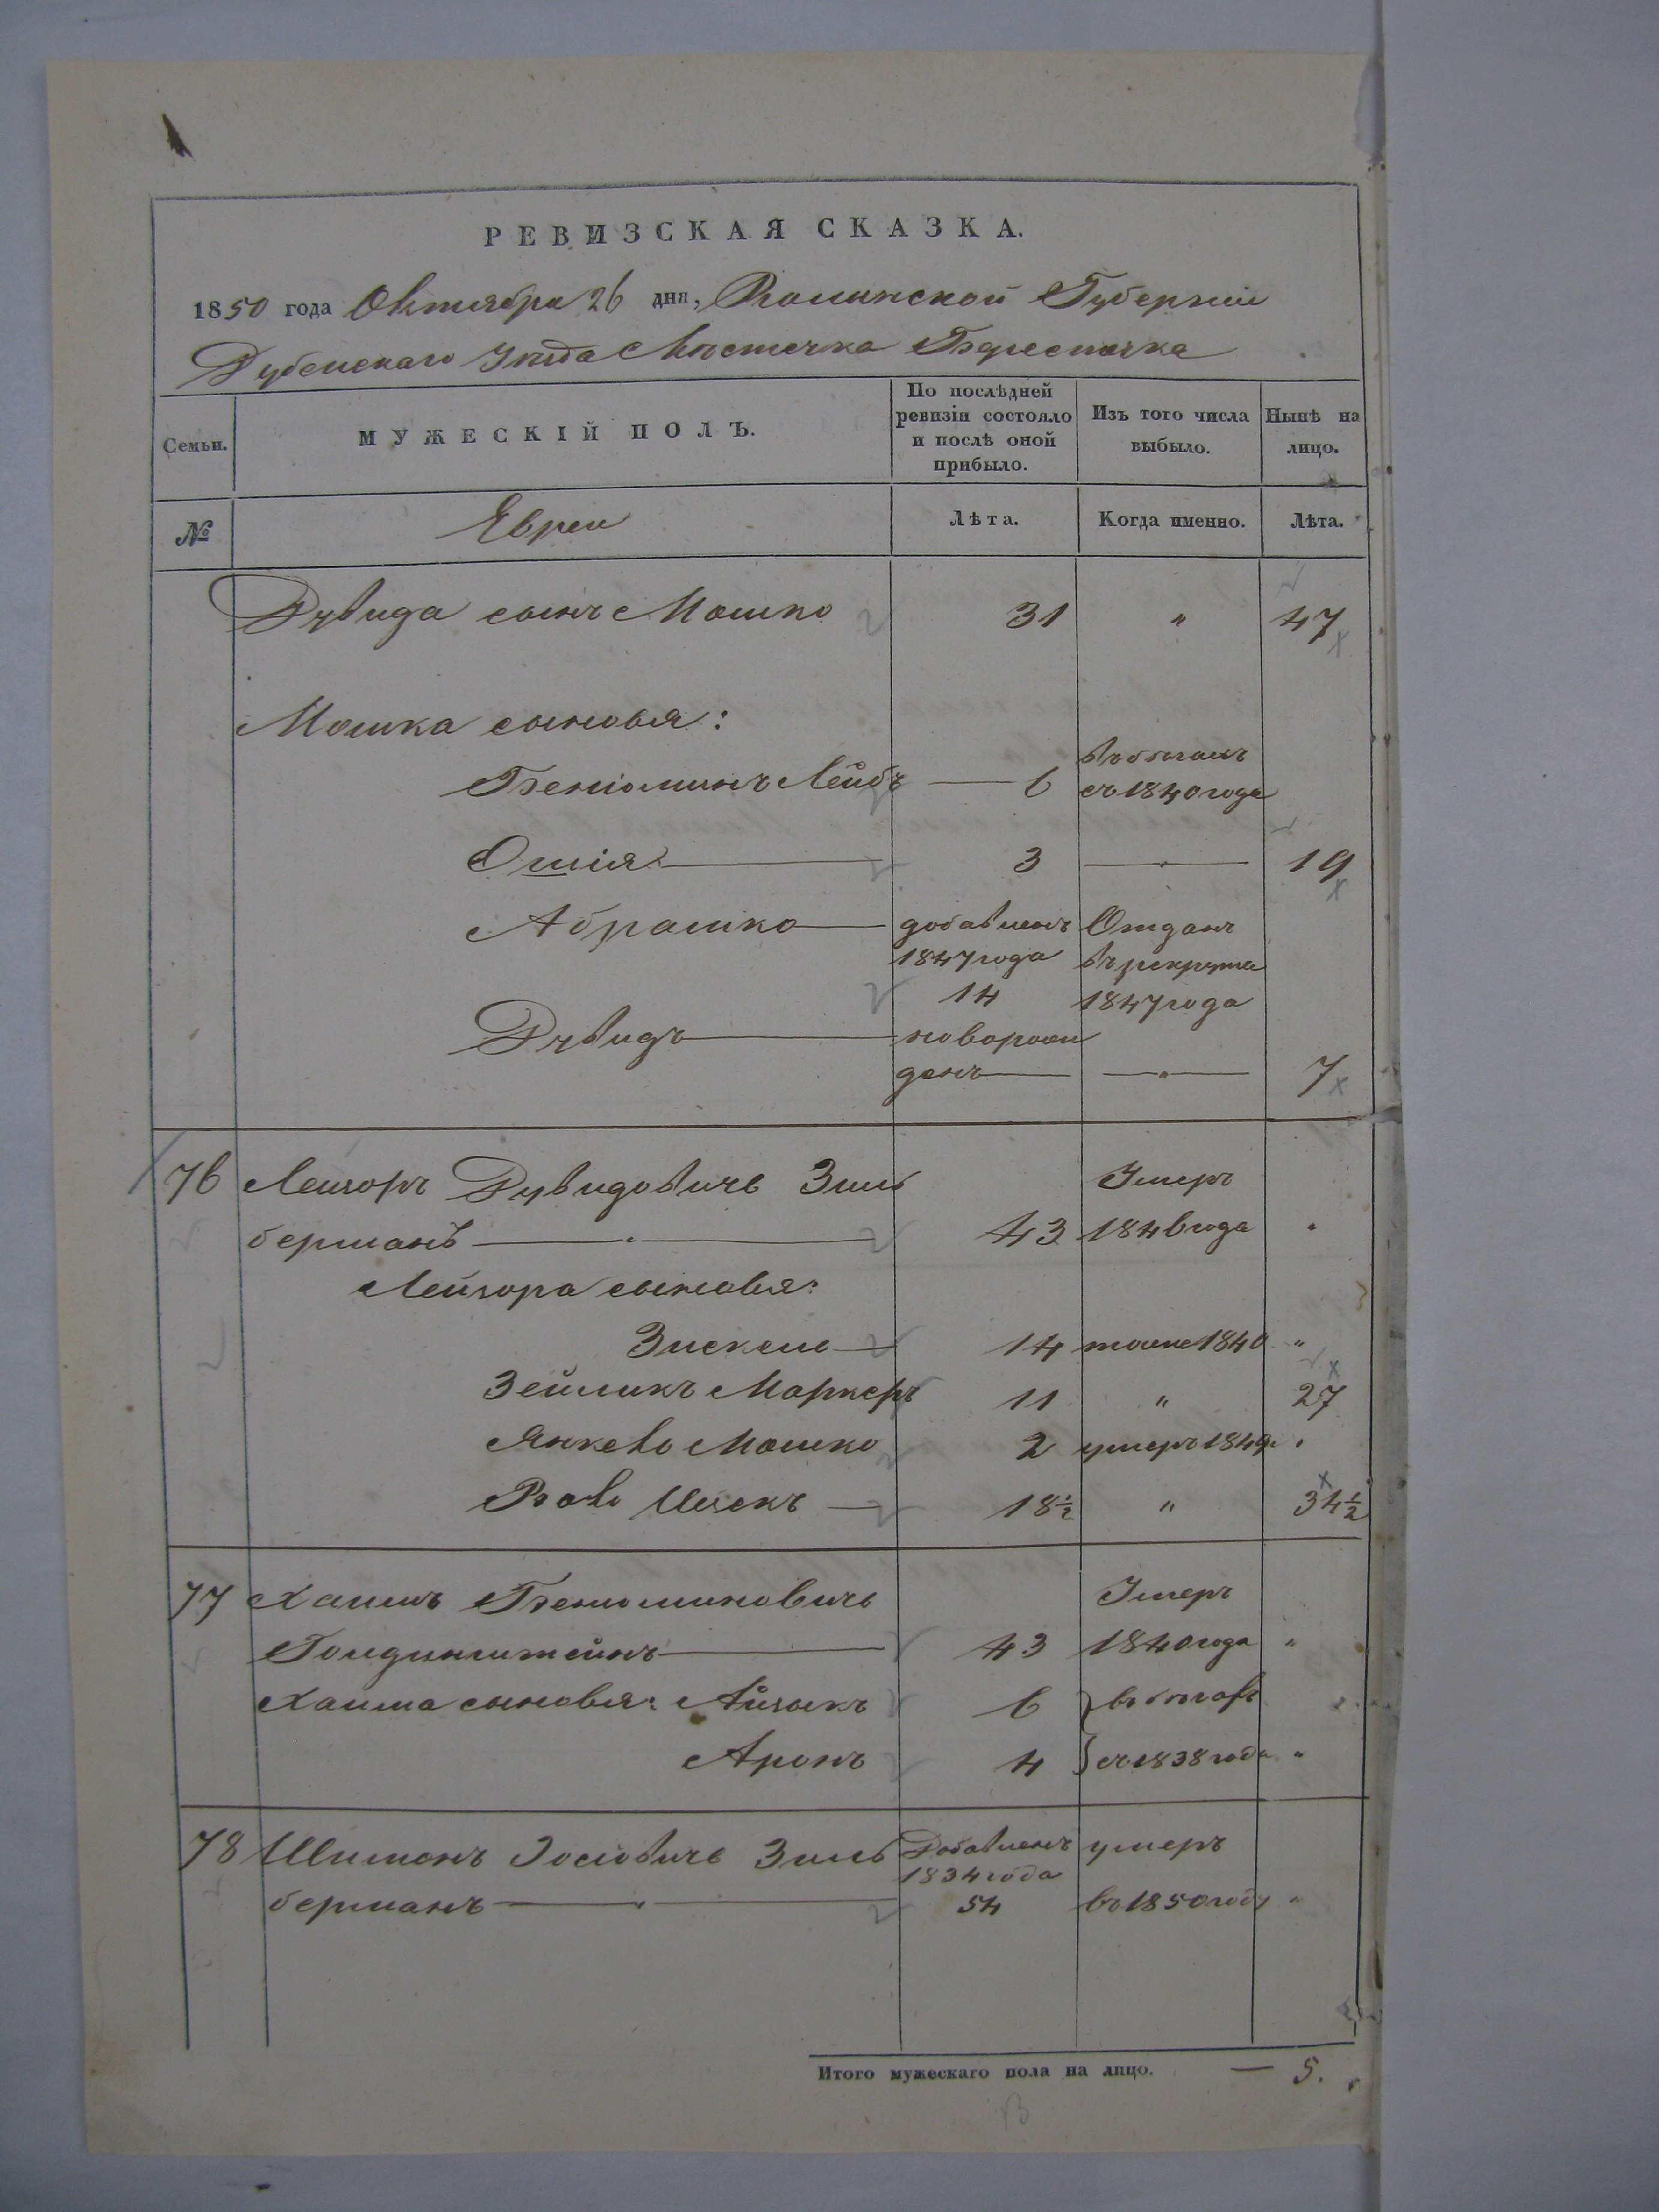 РЕВИЗСКАЯ СКАЗКА.
1850 года Октября 26 дня, Волынской Губерніи
Дубенскаго Уѣзда Мѣстечка Берестечка
Семьи.
МУЖЕСКІЙ ПОЛЪ.
По послѣдней ревизіи состояло и послѣ оной прибыло.
Изъ того числа выбыло.
Нынѣ на лицо.
№
Евреи
Лѣта.
Когда именно.
Лѣта.
Дувида сынъ Мошко 31 " 47
Мошка сыновья:
въ бѣгахъ
Беніоминъ Лейбъ — 6 съ 1840 года
Ошія — 3 — " — 19
Абрашко — добавленъ Отданъ
1847 года въ рекрута
14 1847 года
Дувидъ — новорож
денъ — — " — 7
76 Лейзоръ Дувидовичь Зиль Умеръ
берманъ — " — 43 1846 года "
Лейзора сыновья:
Зискель — 14 тоже 1840 "
Зейликъ Маркеръ 11 " 27
Янкевъ Мошко 2 умеръ 1849 "
Вовъ Ицекъ — 18½ " 34½
77 Хаимъ Беніоминовичь Умеръ
Гольдинштейнъ — 43 1840 года "
Хаима сыновья: Айзыкъ 6 въ бѣгахъ "
Аронъ 4 съ 1838 года "
78 Шимонъ Іосіовичь Зиль Добавленъ умеръ
1834 года
берманъ — " — 54 въ 1850 году "
Итого мужескаго пола на лицо. — 5.